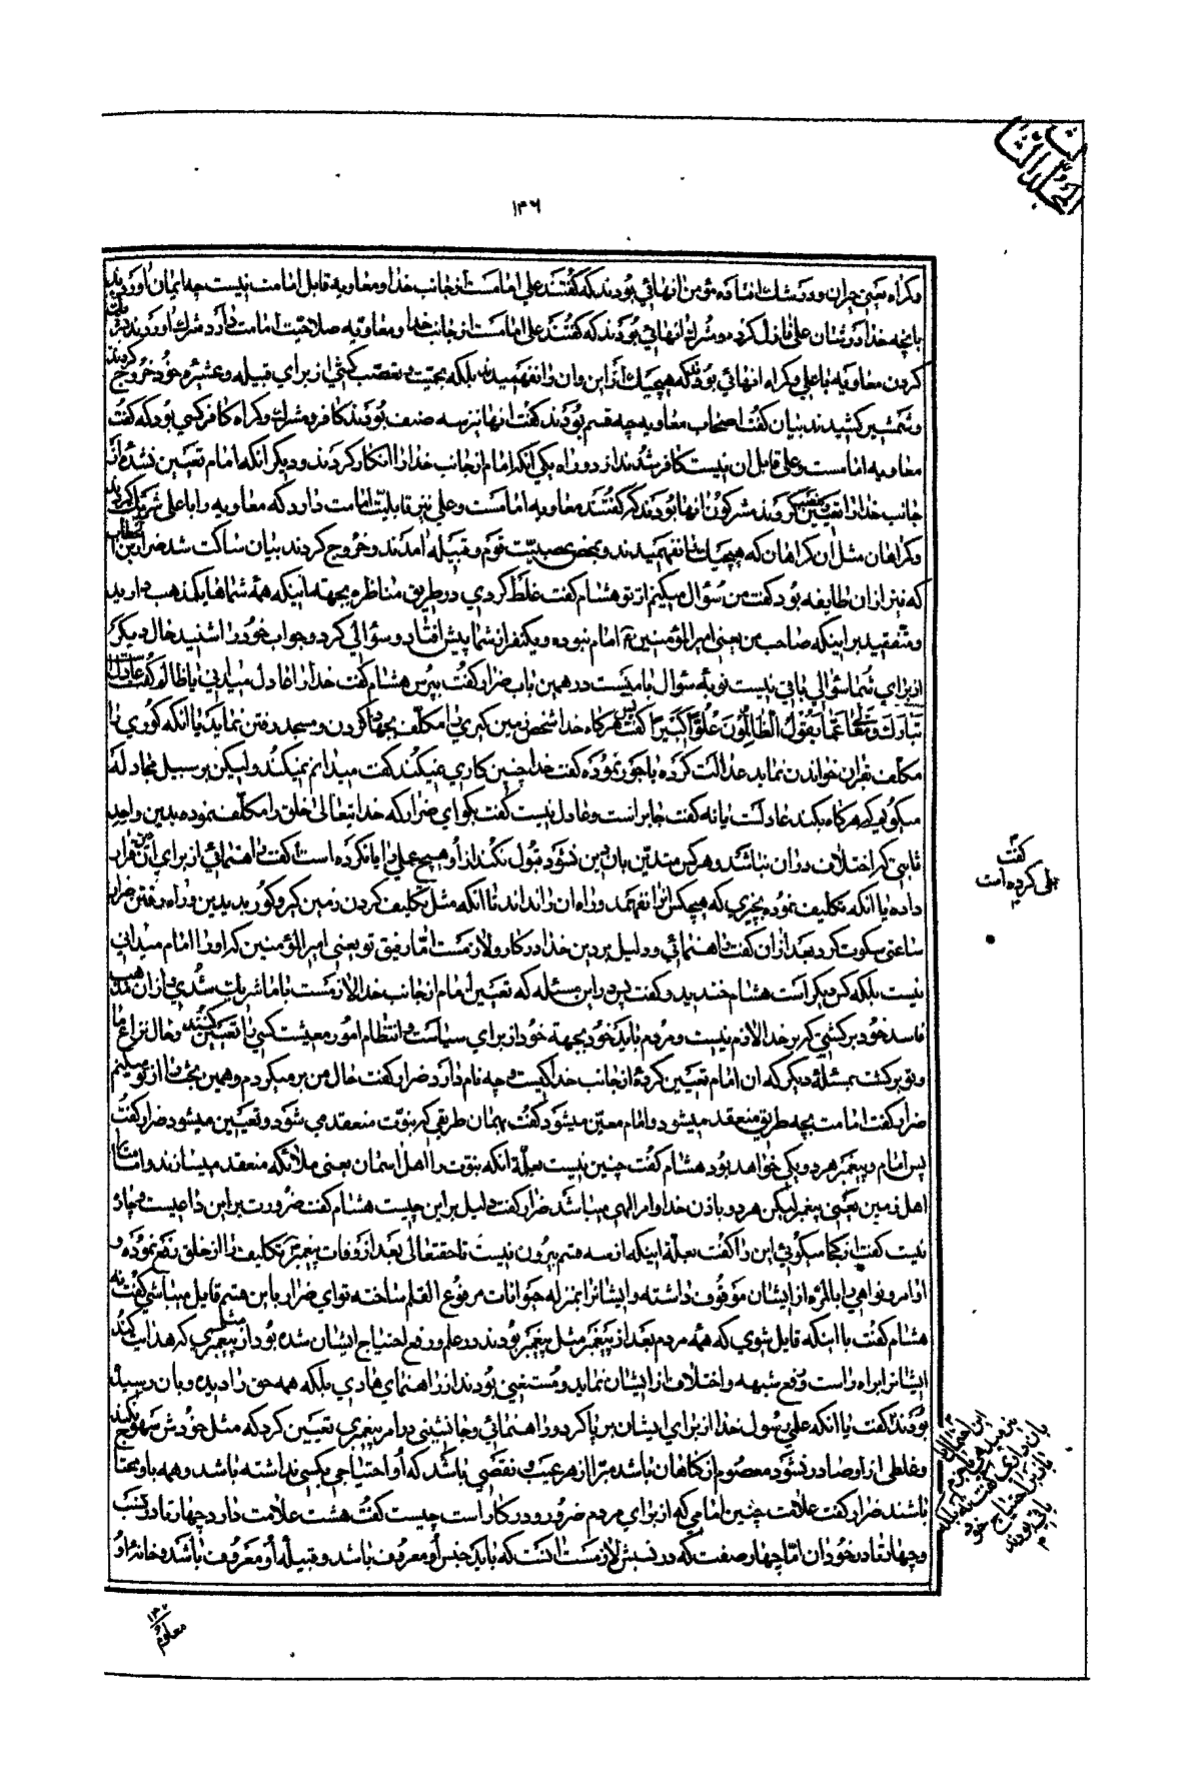 المجلد الثالث
۱۳۶
و کمراه یعنی حیران و در شک افتاده مؤمن انهائی بودند که گفتند علی امامست از جانب خدا و معاویه قابل امامت نیست چه ایمان اوردند
بانچه خدا در شان علی نازل کرده و مشرک انهائی بودند که گفتند علی امامست از جانب خدا و معاویه صلاحیت امامت دارد شرک اوردند
کردن معاویه با علی و کمراه انهائی بودند که هیچیک از این و ان را نفهمیدند بلکه بحمیت و تعصب کشی از برای قبیله و عشیره خود خروج کردند
و شمشیر کشیدند بنان گفت اصحاب معاویه چه قسم بودند گفت انها نیز سه صنف بودند کافر و مشرک و کمراه کافر کسی بود که گفت
معاویه امامست و علی قابل ان نیست کافر شدند از دو راه یکی انکه امام از جانب خدا را انکار کردند و دیگر انکه امام تعیین نشده از
جانب خدا را تعیین کردند مشرکون انها بودند که گفتند معاویه امامست و علی نیز قابلیت امامت دارد که معاویه را با علی شریک کردند
و کمراهان مثل ان کمراهان که هیچیک را نفهمیدند و بمحض عصبیت قوم و قبیله امدند و خروج کردند بنان ساکت شد ضرار بن
که نیز از ان طایفه بود گفت من سؤال میکنم از تو هشام گفت غلط کردی در طریق مناظره بجهة اینکه همهٔ شماها یکمذهب دارید
و متفقید بر اینکه صاحب من یعنی امیر المؤمنین امام نبوده و یکنفر از شما پیش افتاد و سؤالی کرد و جواب خود را شنید حال دیگر
از برای شما سؤالی باقی نیست نوبهٔ سؤال با منست در همین باب ضرار گفت بپرس هشام گفت خدا را عادل میدانی یا ظالم گفت عادل است
تبارک و تعالی عما یقول الظالمون علوا کبیرا گفت پس هرگاه خدا شخص زمین گیری را مکلف بجهاد کردن و مسجد رفتن نماید یا انکه کوری را
مکلف بقران خواندن نماید عدالت کرده یا جور نموده گفت خدا چنین کاری نمیکند گفت میدانم نمیکند ولیکن بر سبیل مجادله
میگویم که هرگاه بکند عادلست یا نه گفت جابر است و عادل نیست گفت بگو ای ضرار که خدایتعالی خلق را مکلف نموده بدین واحد
ثابتی که اختلاف در ان نباشد و هرکس متدین بان دین نشود قبول نکند از او هیچ عملی را یا نکرده است گفت راهنمائی از برای این دین قرار
داده یا انکه تکلیف نموده بچیزی که هیچکس انرا نفهمد و راه ان را نداند تا انکه مثل تکلیف کردن زمین گیر و کور بدیدن و راه رفتن ضرار
ساعتی سکوت کرد بعد از ان گفت راهنمائی و دلیل بر دین خدا در کار و لازمست اما رفیق تو یعنی امیر المؤمنین که او را امام میدانی
نیست بلکه کس دیگر است هشام خندید و گفت پس در این مسئله که تعیین امام از جانب خدا لازمست با ما شریک شدی از ان مذهب
فاسد خود برگشتی که بر خدا لازم نیست و مردم باید خود بجهة خود از برای سیاست و انتظام امور معیشت کسی را تعیین کنند و حال نزاع ما
و تو برگشت بمسئلهٔ دیگر که ان امام تعیین کردهٔ از جانب خدا کیست و چه نام دارد ضرار گفت حال من بر میگردم و همین بحث را از تو میکنم
ضرار گفت امامت بچه طریق منعقد میشود و امام معین میشود گفت بهمان طریقی که نبوت منعقد می شود و تعیین میشود ضرار گفت
پس امام و پیغمبر هر دو یکی خواهد بود هشام گفت چنین نیست بعلة انکه نبوت را اهل اسمان یعنی ملائکه منعقد میسازند و امامت را
اهل زمین یعنی پیغمبر لیکن هر دو باذن خدا و امر الهی میباشد ضرار گفت دلیل بر این چیست هشام گفت ضرورت بر این داعیست و چاره
نیست گفت از کجا میگوئی این را گفت بعلة اینکه از سه قسم بیرون نیست تا حقتعالی بعد از وفات پیغمبر تکلیف را از خلق رفع نموده و
اوامر و نواهی را بالمره از ایشان موقوف داشته و ایشانرا بمنزله حیوانات مرفوع القلم ساخته تو ای ضرار باین قسم قایل میباشی گفت نه
هشام گفت یا اینکه قایل شوی که همه مردم بعد از پیغمبر مثل پیغمبر بودند در علم و رفع احتیاج ایشان شده بود از پیغمبری که هدایت کند
ایشانرا براه راست و رفع شبهه و اختلاف از ایشان نماید و مستغنی بودند از راهنمای هادی بلکه همه حق را دیده و بان رسیده
بودند گفت یا انکه علی رسول خدا از برای ایشان بر پا کرد و راهنمائی و جانشینی در امر پیغمبری تعیین کرد که مثل خودش سهو نکند
و غلطی از او صادر نشود معصوم از کناهان باشد مبرا از هر عیب و نقصی باشد که او احتیاجی بکسی نداشته باشد و همه باو محتاج
باشند ضرار گفت علامت چنین امامی که از برای مردم ضرور و در کار است چیست گفت هشت علامت دارد چهار تا در نسب
و چهار تا در خود ان اما چهار صفت که در نسبش لازمست انست که باید جنس او معروف باشد و قبیلهٔ او معروف باشد و خانهٔ او
گفت
بلی کرده است
۱۳۷
معلوم